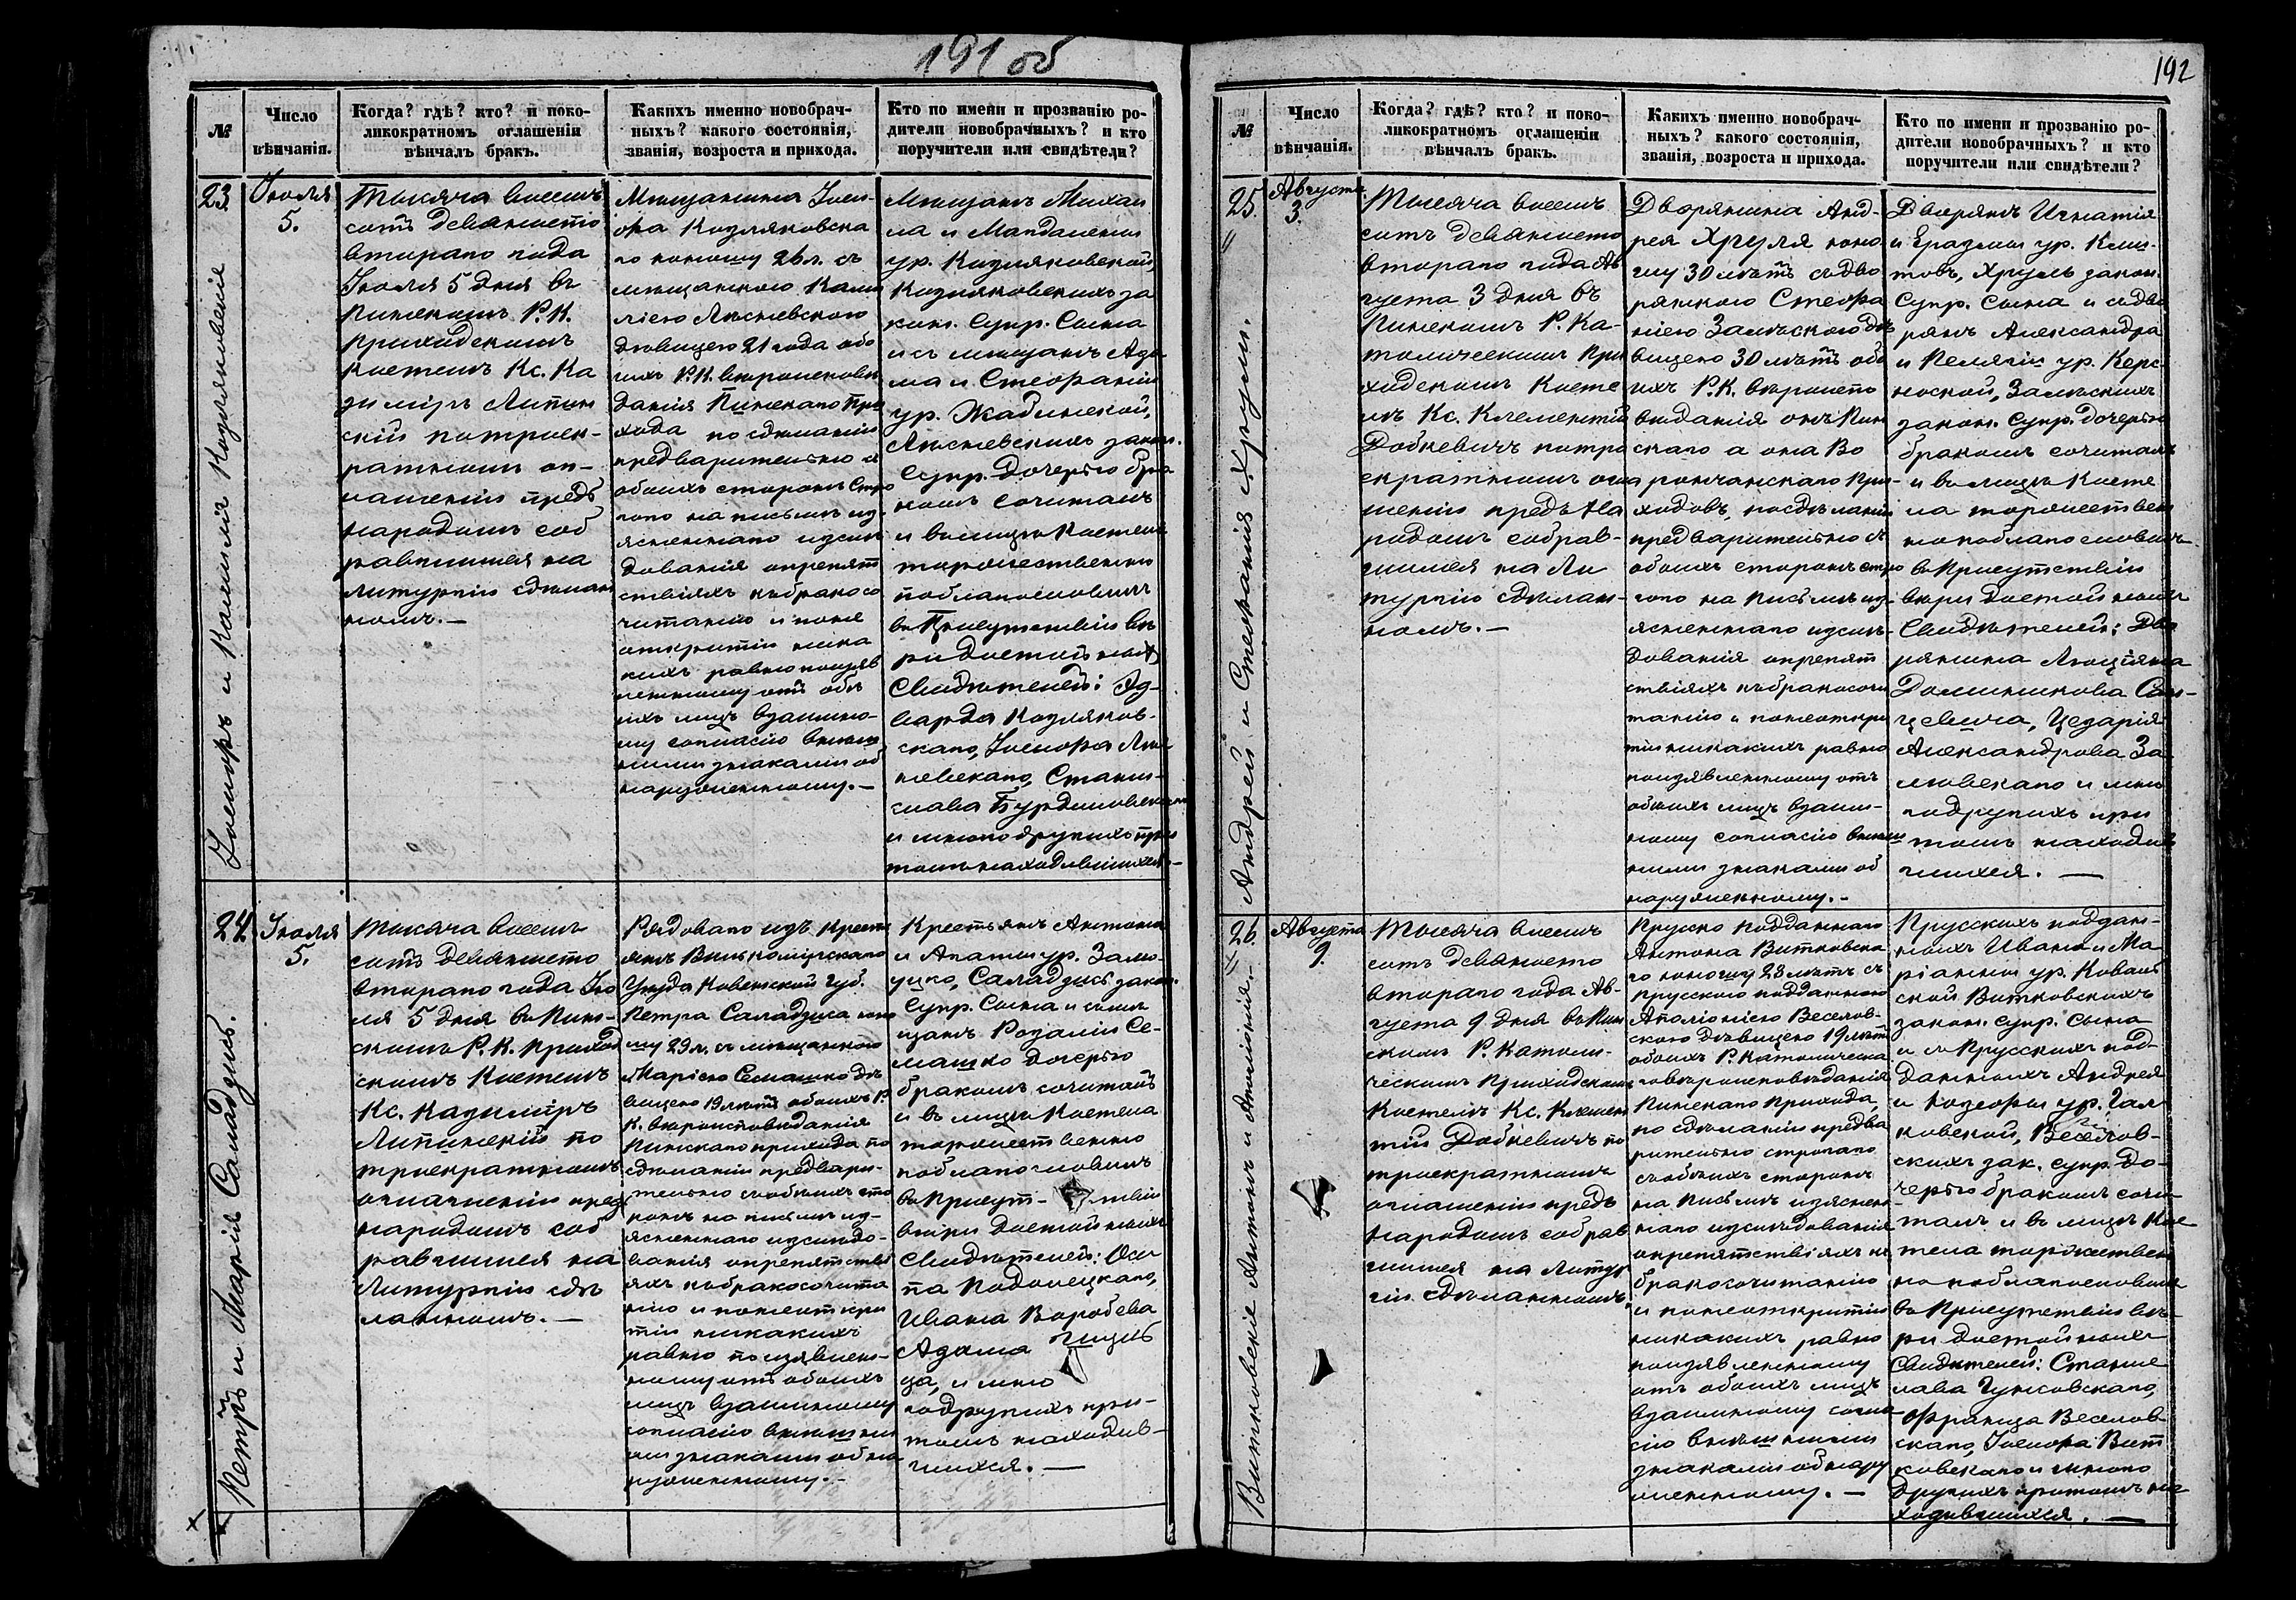 191 об
№
Число
вѣнчанія.
Когда? гдѣ? кто? и поко-
ликократномъ оглашеніи
вѣнчалъ бракъ.
Какихъ именно новобрач-
ныхъ? какого состоянія,
званія, возроста и прихода.
Кто по имени и прозванію ро-
дители новобрачныхъ? и кто
поручители или свидѣтели?
23.
Іюля
5.
Тысяча восемь
сотъ девяносто
втораго года
Іюля 5 дня въ
Пинскомъ Р. К.
Приходскомъ
костелѣ Кс. Ка
зимiръ Липин
скій потроек-
ратномъ ог-
лашеніи предъ
народомъ соб
равшимся на
литургію сдѣлан
номъ. —
Мѣщанина Іоси-
фа Козляковска
го юношу 26 л. съ
мѣщанкою Ками
ліею Лисневскою
дѣвицею 21 года обо
ихъ Р. К. вѣроисповѣ
данія Пинскаго При
хода по сдѣланіи
предварительно съ
обоихъ сторонъ стро
гого на письмѣ из
ясненнаго изслѣ
дованія опрепят
ствіяхъ къ бракосо
читанію и поне
открытіи ника
кихъ равно поизяв
ленному отъ обо
ихъ лицъ взаимно-
му согласію внѣш
ними знаками об
наруженному. —
Мѣщанъ Михаи
ла и Магдалены
ур. Козляковской,
Козляковскихъ за
кон. Супр. Сына
и съ мѣщанъ Ада
ма и Стефаніи
ур. Жадинской,
Лисневскихъ закон.
Супр. Дочерью бра
комъ сочиталъ
и влицѣ Костела
торжественно
поблагословилъ
въ Присутствіи вѣ
ри достойныхъ
Свидѣтелей: Эд-
варда Козляков-
скаго, Іосифа Лис
невскаго, Станис-
лава Бурдиловскаго
и много другихъ при
томъ находившихся. —
Іосифъ и Камилія Козляковскіе
24.
Іюля
5.
Тысяча восемь
сотъ девяносто
втораго года Ію
ля 5 дня въ Пин-
скомъ Р. К. Приход
скомъ Костелѣ
Кс. Казимиръ
Липинскій по
троекратномъ
оглашеніи предъ
народомъ соб
равшимся на
Литургіи сдѣ
ланномъ. —
Рядоваго изъ крест
янъ Вилькомірскаго
Уѣзда Ковенской губ.
Петра Саладзиса юно
шу 29 л. съ мѣщанкою
Маріею Семашко дѣ
вицею 19 лѣтъ обоихъ Р.
К. вѣроисповѣданія
Пинскаго прихода по
сдѣланіи предвари-
тельно съ обоихъ сто
ронъ на письмѣ из-
ясненнаго изслѣдо-
ванія опрепятстві
яхъ къ бракосочита
нію и понеоткры
тіи никакихъ
равно поизявлен-
ному отъ обоихъ
лицъ взаимному
согласію внѣшни
ми знаками обна
руженному. —
Крестьянъ Антона
и Агаты ур. Залю-
уцко, Саладзисъ закон.
Супр. Сына и съ мѣ
щанъ Розаліи Се-
машко дочерью
бракомъ сочиталъ
и въ лицѣ Костела
торжественно
поблагословилъ
въ Присут- ствіи
вѣри достойныхъ
Свидѣтелей: Оси
па Подолецкаго,
Ивана Воробева
Адама
ца, и мно
годругихъ при-
томъ находив-
шихся. —
Петръ и Марія Саладзись.
192
№
Число
вѣнчанія.
Когда? гдѣ? кто? и поко-
ликократномъ оглашеніи
вѣнчалъ бракъ.
Какихъ именно новобрач-
ныхъ? какого состоянія,
званія, возроста и прихода.
Кто по имени и прозванію ро-
дители новобрачныхъ? и кто
поручители или свидѣтели?
25.
Августа
3.
Тысяча восемь
сотъ девяносто
втораго года Ав
густа 3 дня въ
Пинскомъ Р. Ка-
толическомъ При
ходскомъ Косте
лѣ Кс. Клементій
Добкевичъ потро
екратномъ огла
шеніи предъ На
родомъ собрав-
шимся на Ли
тургію сдѣлан-
номъ. —
Дворянина Анд-
рея Хруля юно
шу 30 лѣтъ съ дво
рянкою Стефа
ніею Залѣскою дѣ
вицею 30 лѣтъ обо
ихъ Р. К. вѣроиспо
виданія онъ Пин
скаго а она Во
рончанскаго При-
ходовъ, посдѣланіи
предварительно съ
обоихъ сторонъ стро
гого на письмѣ из-
ясненнаго изслѣ-
дованія опрепят
ствіяхъ къ бракосочи
танію и понеоткры
тіи никакихъ равно
поизявленному отъ
обоихъ лицъ взаим-
ному согласію внѣш
ними знаками об
наруженному. —
Дворянъ Игнатія
и Еразмы ур. Клин-
товъ, Хруль закон.
Супр. Сына и съ дво
рянъ Александра
и Пелягіи ур. Керс-
ноской, Залѣскихъ
закон. Супр. Дочерью
бракомъ сочиталъ
и въ лицѣ Косте
ла торжествен
но поблагословилъ
въ Присутствіи
вѣри достойныхъ
Свидѣтелей: Дво
рянина Люціяна
Доминикова Сан-
цевича, Цезарія
Александрова За
лювскаго и мно
годругихъ при
томъ находив
шихся. —
Андрей и Стефанія Хруль.
26.
Августа
9.
Тысяча восемь
сотъ девяносто
втораго года Ав-
густа 9 дня въ Пин
скомъ Р. Католи-
ческомъ Приходскомъ
Костелѣ Кс. Клемен
тій Добкевичъ по
троекратномъ
оглашеніи предъ
Народомъ собрав
шимся на Литур
гіи сдѣланномъ.
Прусско подданнаго
Антона Витковска
го юношу 23 лѣтъ съ
прусского подданною
Аполіоніею Веселов-
скою дѣвицею 19 лѣтъ
обоихъ Р. Католическа
го вѣроисповѣданія
Пинскаго Прихода,
по сдѣланіи предва
рительно строгаго
съ обоихъ сторонъ
на письмѣ изяснен
наго изслѣдованія
опрепятствіяхъ къ
бракосочитанію
и понеоткрытіи
никакихъ равно
поизявленному
отъ обоихъ лицъ
взаимному согла
сію внѣшними
знаками обнару
женному. —
Прусскихъ поддан-
ныхъ Ивана и Ма
ріанны ур. Коваль
ской Витковскихъ
закон. супр. Сына
и съ Прусскихъ под-
данныхъ Андрея
и Юзефы ур. Гал
ковской, Веселов-
скихъ зак. супр. До-
черью бракомъ сочи
талъ и въ лицѣ Кос
тела торжествен
но поблагословилъ
въ Присутствіи вѣ-
ри достойныхъ
Свидителей: Станис
лава Гунсовскаго,
Франца Веселов-
скаго, Іосифа Вит
ковскаго и много
другихъ притомъ на
ходившихся. —
Витковскіе Антонъ и Аполіонія.